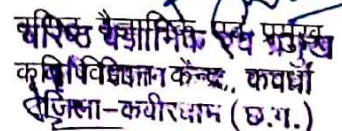 वरिष्ठ वैज्ञानिक एवं प्रमुख
कृषि विज्ञान केन्द्र, कवर्धा
जिला-कबीरधाम (छ.ग.)